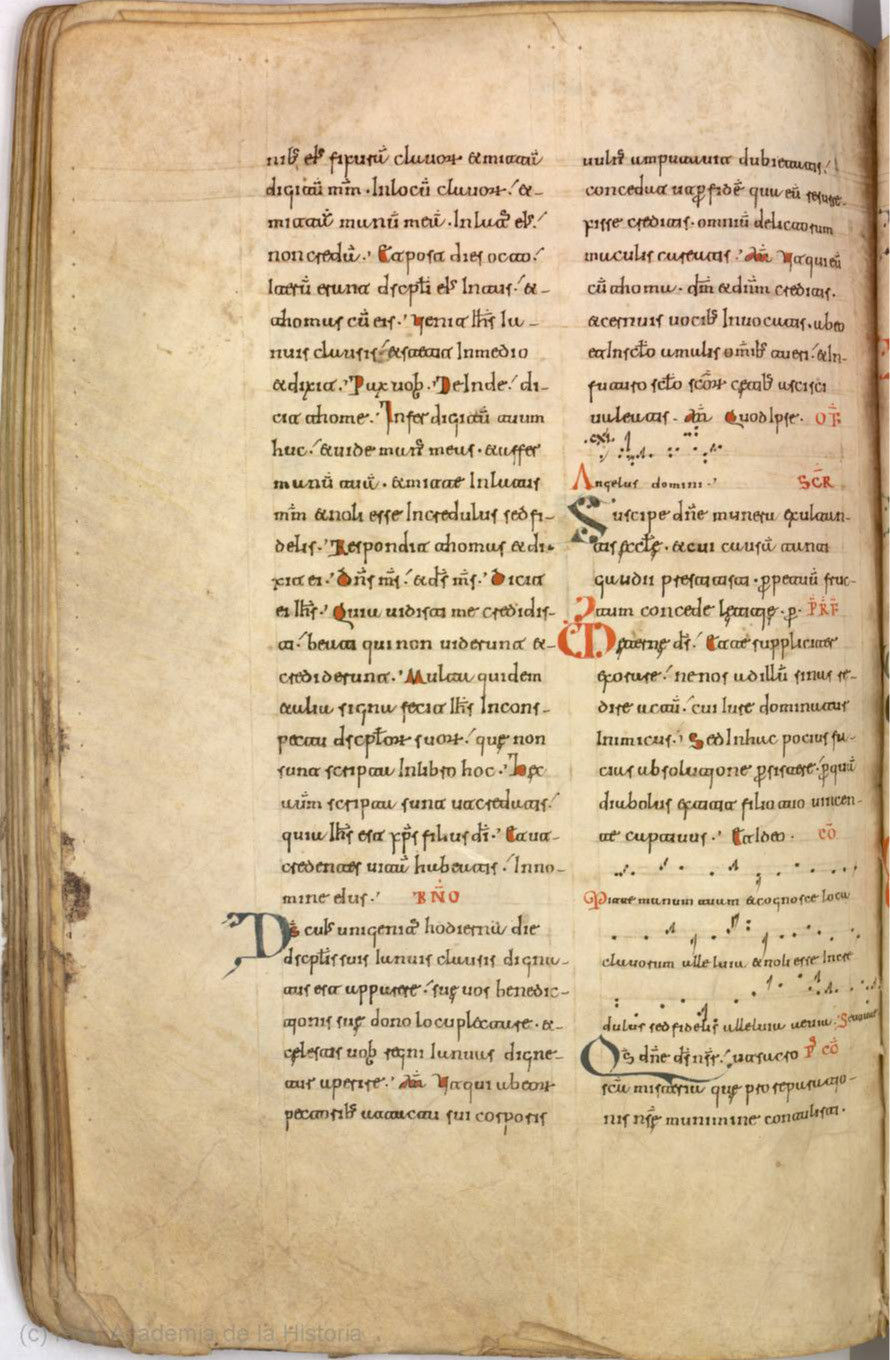 nib; ei; fixurā clauoꝝ & mittā
digitū mm̄. In locū clauoꝝ. &
mittā manū meā. In lat; ei;
non credā. Et post dies octo.
Iterū erunt dscpłi ei; Intus. &
thomas cū eis. Uenit Ihs̄ Ia-
nuis clausis. & stetit In medio
& dixit. Pax uob. Deinde. di-
cit thome. Infer digitū tuum
huc. & uide man; meas. & affer
manū tuā. & mitte In latus
mm̄ & noli esse Incredulus sed fi-
delis. Respondit thomas & di-
xit ei. Dn̄s ms̄. & ds̄ ms̄. Dicit
ei Ihs̄. Quia uidisti me credidis-
ti. beati qui non uiderunt &
crediderunt. Multa quidem
& alia signa fecit Ihs̄ In cons-
pectu dscpłoꝝ suoꝝ. quę non
sunt scripta In libro hoc. Hęc
autm̄ scripta sunt ut credatis.
quia Ihs̄ est xp̄s filius dī. Et ut
credentes uitā habeatis. In no-
mine eIus. BN̄O
Ds̄ cui; unigenit; hodiernā die
dscpłis suis Ianuis clausis digna-
tus est apparere. suę uos benedic-
tionis sue dono locuplectare. &
cęlestis uob regni Ianuas digne-
tur aperire. Am̄ Ut qui ab eoꝝ
pectorib; tactu sui corporis
uuln; amputauit dubietatis.
concedat ut ꝓ fidē qua eū resurre-
xisse creditis. omniū delictorum
maculis careatis. Am̄ Ut qui eū
cū thoma. dm̄ & dnm̄ creditis.
& cernuis uocib; Inuocatis. ab eo
et In sclo a malis omīb; tueri. & In
futuro sclo scoꝝ cętib; ascisci
ualeatis. Am̄ Quod Ipse. OF̄
.cxi.
Angelus domini. SCR̄
Suscipe dn̄e munera exultan-
tis ęccłę. & cui causā tanti
gaudii prestitisti. ꝑpetuū fruc-
tum concede lętitię. ꝑ. PRF̄
UD ęterne ds̄. Et te suppliciter
exorare. ne nos ad illū sinas re-
dire actū. cui Iure dominatus
Inimicus. Sed In hac pocius fa-
cias absolutione ꝑsistere. ꝑ quā
diabolus extitit filio tuo uincen-
te captiuus. Et Ideo. CŌ
Mitte manum tuam & cognosce loca
clauorum alleluia & noli esse Incre
dulus sed fidelis alleluia aeuia.
Qs̄ dn̄e ds̄ nsr̄. ut sacro P̄ CŌ
scā misteria quę pro reparatio-
nis nsę̄ munimine contulisti.
(c) Real Academia de la Historia